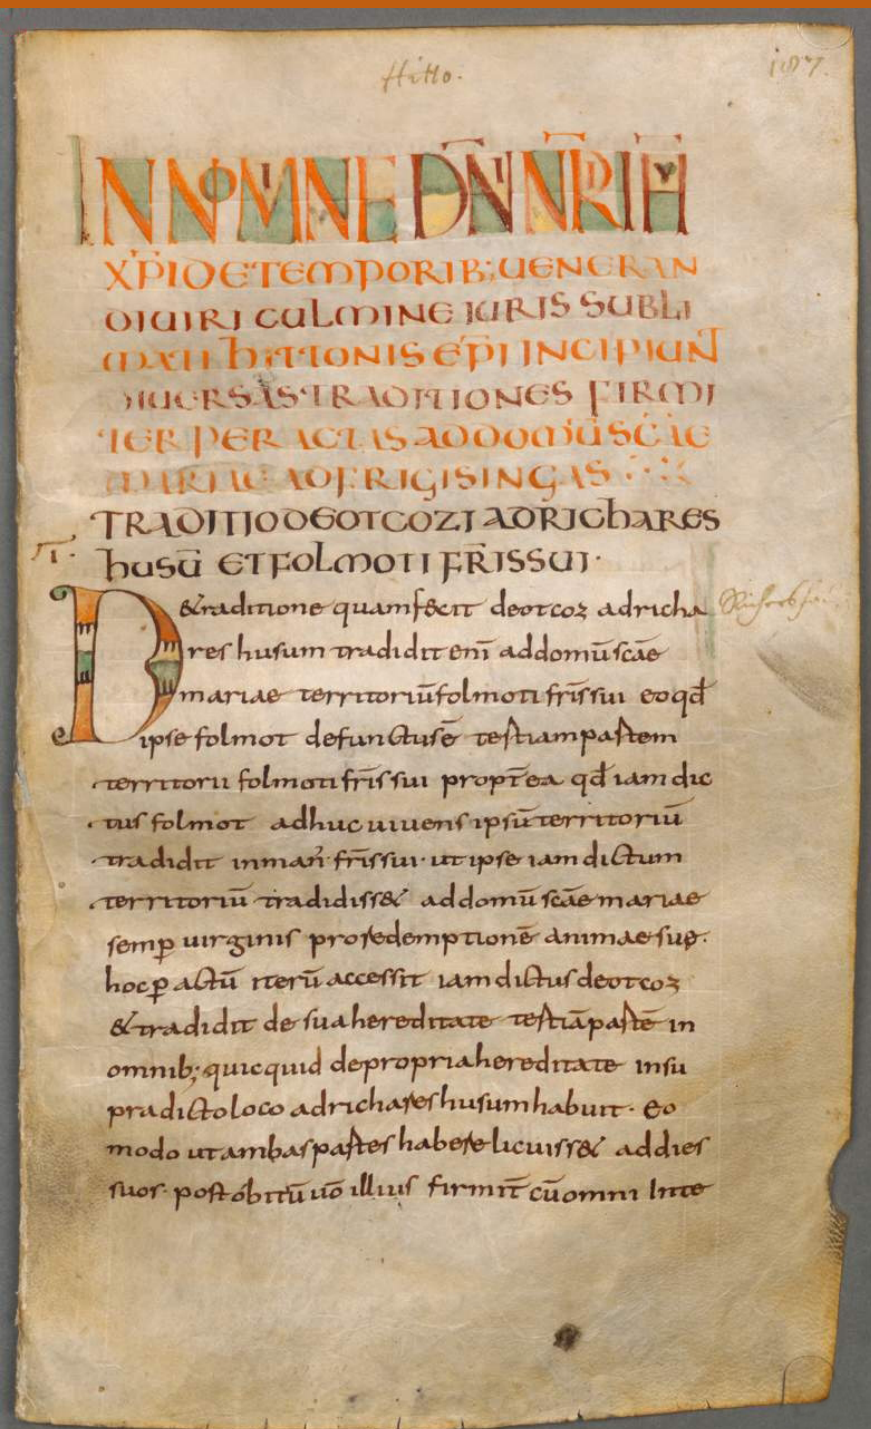 Hitto.
187.
IN NOMINE DNI NRI IH
XPI DE TEMPORIB; UENERAN
DI UIRI CULMINE IURIS SUBLI
MATI hITTONIS EPI INCIPIUNT
DIUERSAS TRADITIONES FIRMI
TER PERACTAS AD DOMŪ SCAE
MARIAE AD FRIGISINGAS
TRADITIO DEOTCOZI AD RIChARES
husū ET FOLMOTI FRISSUI·
De traditione quam fecit deotcoz ad richa
res husum tradidit enī ad domū scāe
mariae territoriū folmoti frīssui eo qđ
ipse folmot defunctus ē tertiam partem
territorii folmoti frīssui propt̄ea qđ iam dic
tus folmot adhuc uiuens ipsū territoriū
tradidit in mañ frīssui· ut ipse iam dictum
territoriū tradidiss& ad domū scāe mariae
semꝑ uirginis pro redemptionē animae suę·
hoc ꝑactū iterū accessit iam dictus deotcoz
& tradidit de sua hereditate tertiā partē in
omnib; quicquid de propria hereditate in su
pradicto loco ad richares husum habuit· eo
modo ut ambas partes habere licuiss& ad dies
suos· post obitū uō illius firmit̄ cū omni inte